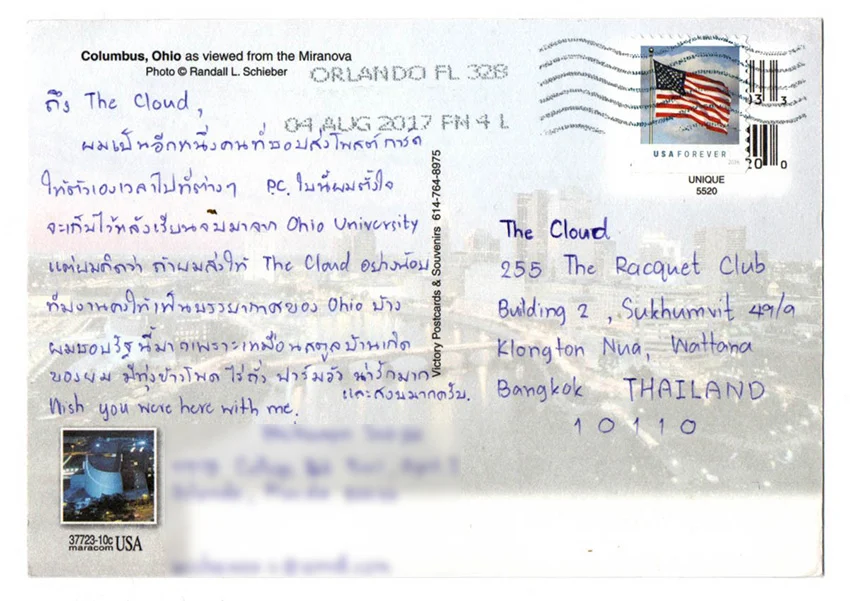 Columbus, Ohio as viewed from the Miranova
Photo © Randall L. Schieber
ORLANDO FL 328
04 AUG 2017 PM 4 L
ถึง The Cloud,
ผมเป็นอีกหนึ่งคนที่ชอบส่งโพสต์การ์ด
ให้ตัวเองเวลาไปที่ต่างๆ P.C. ใบนี้ผมตั้งใจ
จะเก็บไว้หลังเรียนจบมาจาก Ohio University
แต่ผมคิดว่า ถ้าผมส่งให้ The Cloud อย่างน้อย
ทีมงานคงได้เห็นบรรยากาศของ Ohio บ้าง
ผมชอบรัฐนี้มากเพราะเหมือนสตูลบ้านเกิด
ของผม มีทุ่งข้าวโพด ไร่ถั่ว ฟาร์มวัว น่ารักมาก
และสงบมากครับ.
Wish you were here with me.
37723-10c
maracom USA
Victory Postcards & Souvenirs 614-764-8975
USA FOREVER
UNIQUE
5520
The Cloud
255 The Racquet Club
Building 2, Sukhumvit 49/9
Klongton Nua, Wattana
Bangkok THAILAND
10110